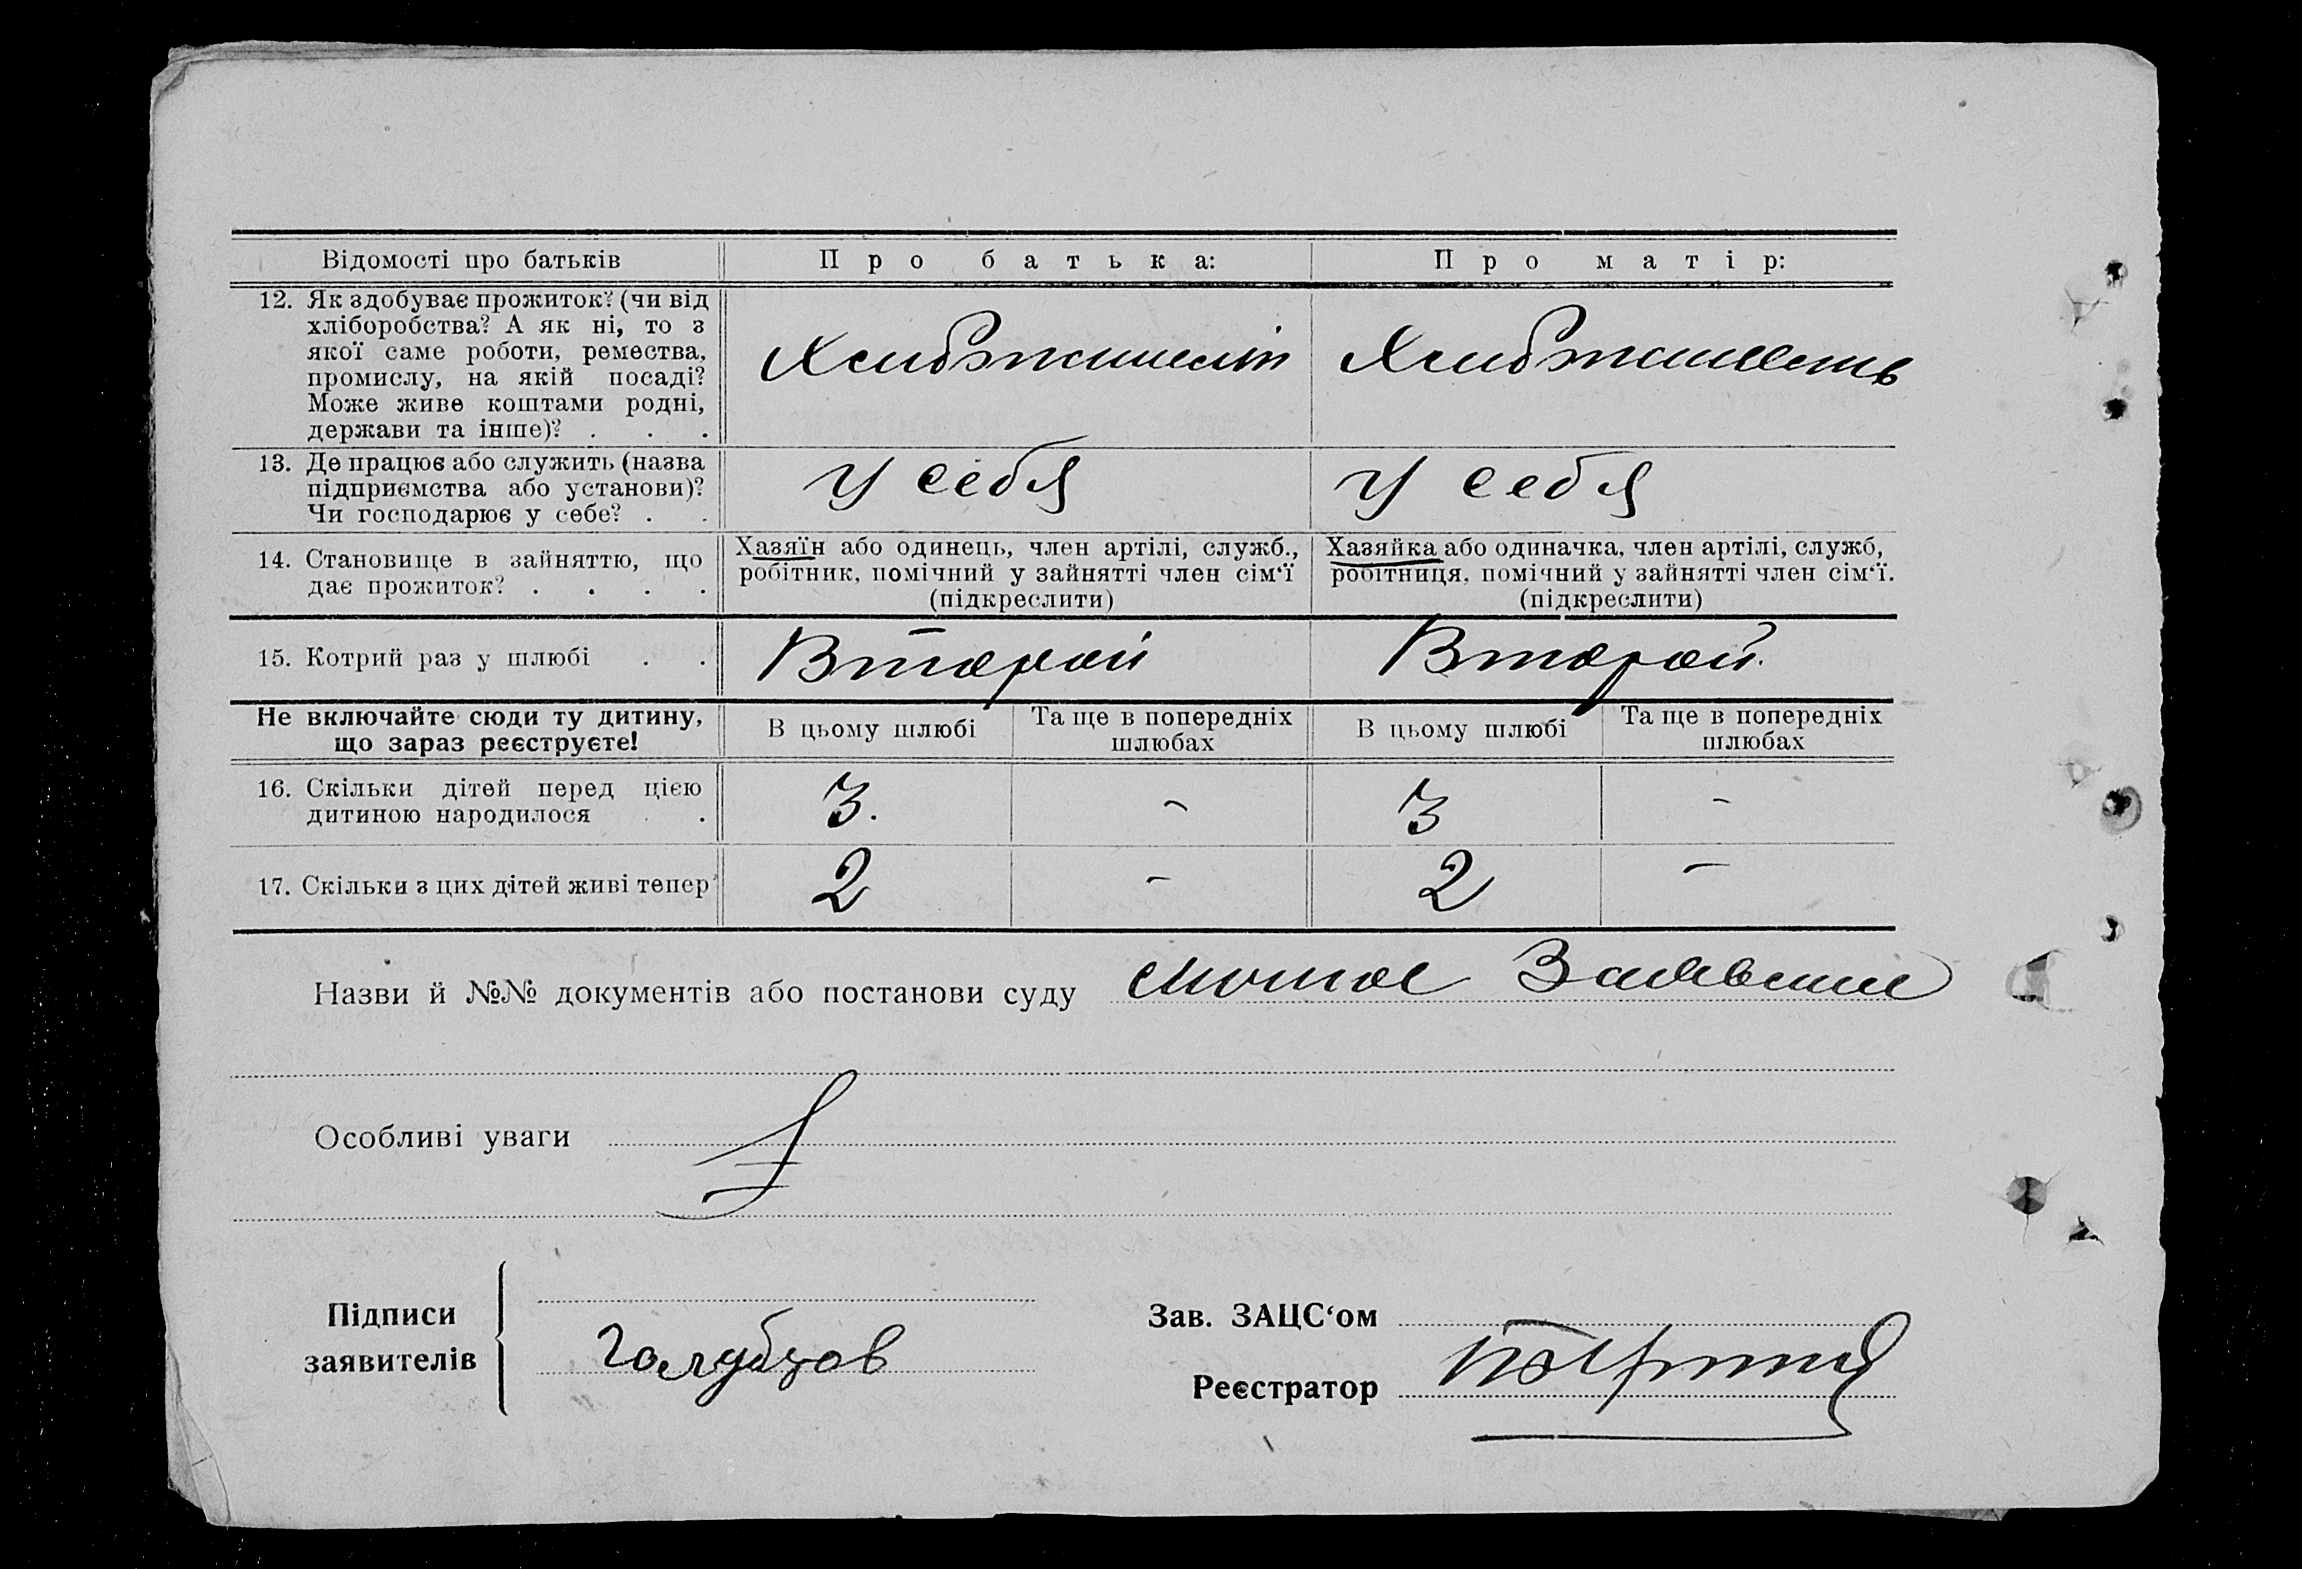 Відомості про батьків
Про батька:
Про матір:
12. Як здобуває прожиток? (чи від
хліборобства? А як ні, то з
якої саме роботи, ремества,
промислу, на якій посаді?
Може живе коштами родні,
держави та інше)? . . .
13. Де працює або служить (назва
підприємства або установи)?
Чи господарює у себе? . .
У себя
У себя
14. Становище в зайняттю, що
дає прожиток? . . . .
Хазяїн або одинець, член артілі, служб.,
робітник, помічний у зайнятті член сім‘ї
(підкреслити)
Хазяйка або одиначка, член артілі, служб,
робітниця, помічний у зайнятті член сім‘ї.
(підкреслити)
15. Котрий раз у шлюбі . .
Второй
Второй.
Не включайте сюди ту дитину,
що зараз реєструєте!
В цьому шлюбі
Та ще в попередніх
шлюбах
В цьому шлюбі
Та ще в попередніх
шлюбах
16. Скільки дітей перед цією
дитиною народилося . .
3.
-
3
-
17. Скільки з цих дітей живі тепер
2
-
2
-
Назви й №№ документів або постанови суду
Особливі уваги
Підписи
заявителів
Голубцов
Зав. ЗАЦС‘ом
Реєстратор